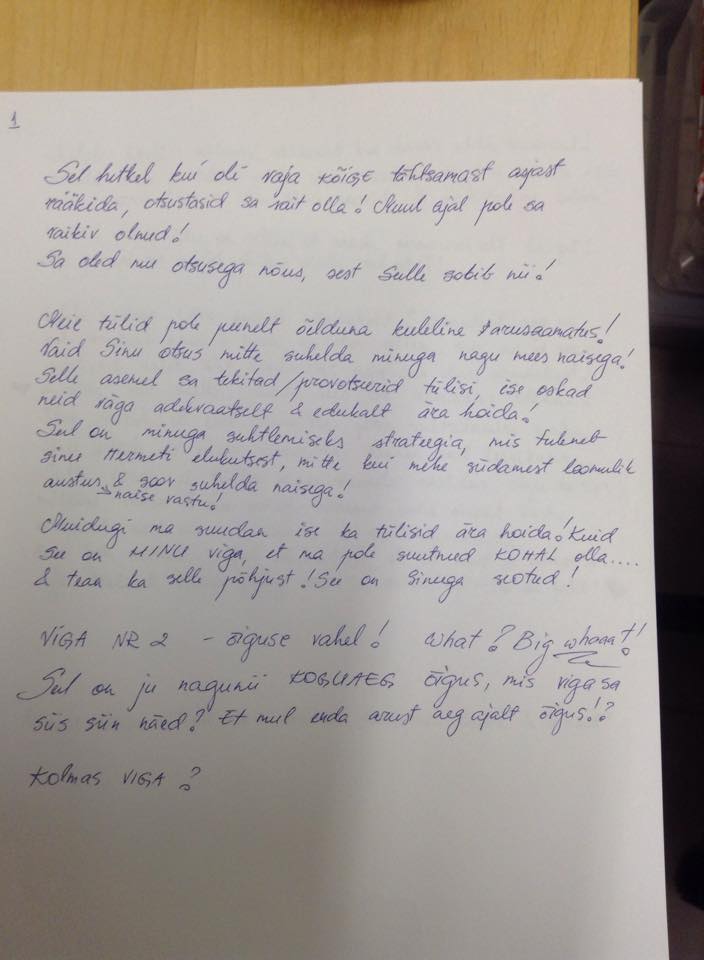 1
Sel hetkel kui oli vaja KÕIGE tähtsamast asjast
rääkida, otsustasid sa vait olla! Muul ajal pole sa
vaikiv olnud!
Sa oled mu otsusega nõus, sest Sulle sobib nii!
Meie tülid pole peenelt öelduna kuleline arusaamatus!
Vaid Sinu otsus mitte suhelda minuga nagu mees naisega!
Selle asemel sa tekitad/provotseerid tülisi, ise oskad
neid väga adekvaatselt & edukalt ära hoida!
Sul on minuga suhtlemiseks strateegia, mis tuleneb
sinu elukutsest, mitte kui mehe südamest loomulik
austus & soov suhelda naisega!
naise vastu!
Muidugi ma suudan ise ka tülisid ära hoida! Kuid
see on MINU viga, et ma pole suutnud KOHAL olla....
& tean ka selle põhjust! See on Sinuga seotud!
VIGA NR 2 - õiguse vahel! What? Big whaaat!
Sul on ju nagunii KOGUAEG õigus, mis viga sa
siis siin näed? Et mul enda arust aeg ajalt õigus!?
KOLMAS VIGA?